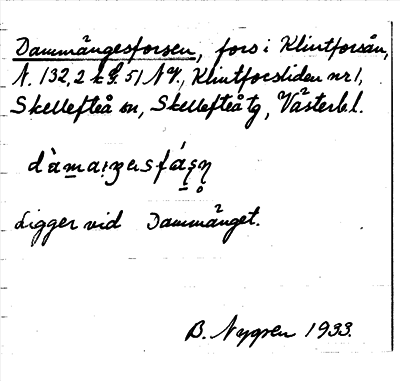 Dammängesforsen, fors i Klintforsån,
N. 132,2 k g. 51 NV., Klintforsliden nr 1,
Skellefteå sn, Skellefteå tg, Västerb. l.
dàmaŋesfáʂn̥
Ligger vid Dammänget.
B. Nygren 1933.